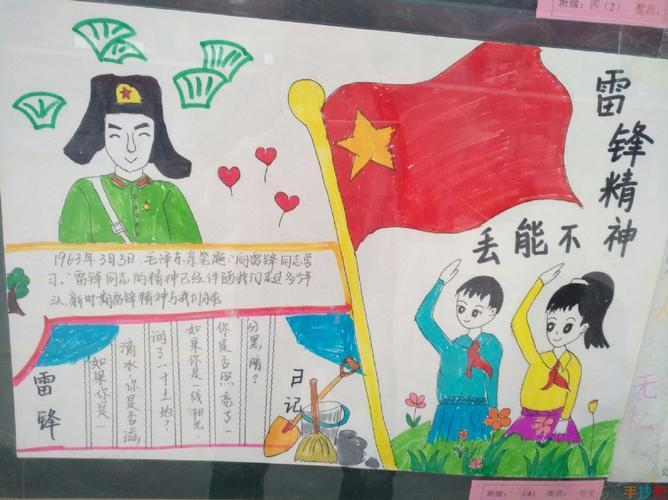 班级：四（2） 奖次：
雷锋精神
不能丢
1963年3月5日，毛泽东亲笔题：“向雷锋同志学
习。”雷锋同志的精神已经伴随我们走过多少年
头，新时期雷锋精神与我们
雷锋
如果你是一
滴水，你是否滋
润了一寸土地？
如果你是一线阳光
你是否照亮了一
分黑暗？
日记
无私
班级：一（4） 奖次
手抄